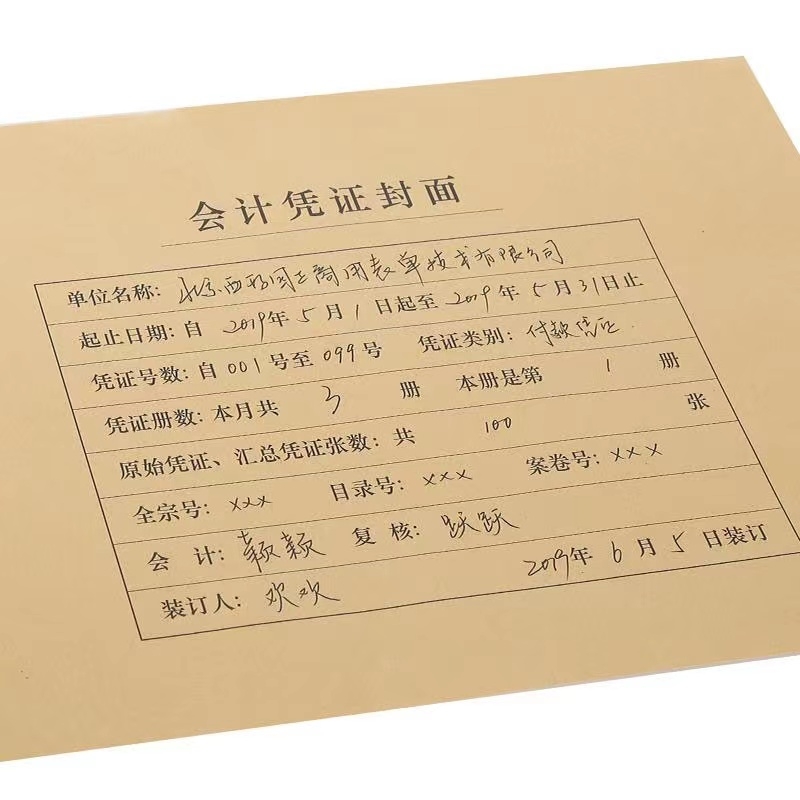 会计凭证封面
单位名称：北京西玛国正商用表单技术有限公司
起止日期：自 2019年 5 月 1 日起至 2019 年 5 月 31 日止
凭证号数：自 001 号至 099 号 凭证类别：付款凭证
凭证册数：本月共 3 册 本册是第 1 册
原始凭证、汇总凭证张数：共 100 张
全宗号：××× 目录号：××× 案卷号：×××
会 计：颖颖 复 核：跃跃
装订人：欢欢 2019年 6 月 5 日装订